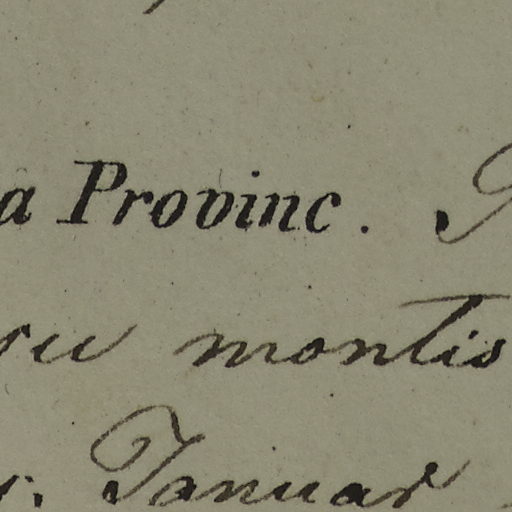 a Provinc.
ru montis
Januar